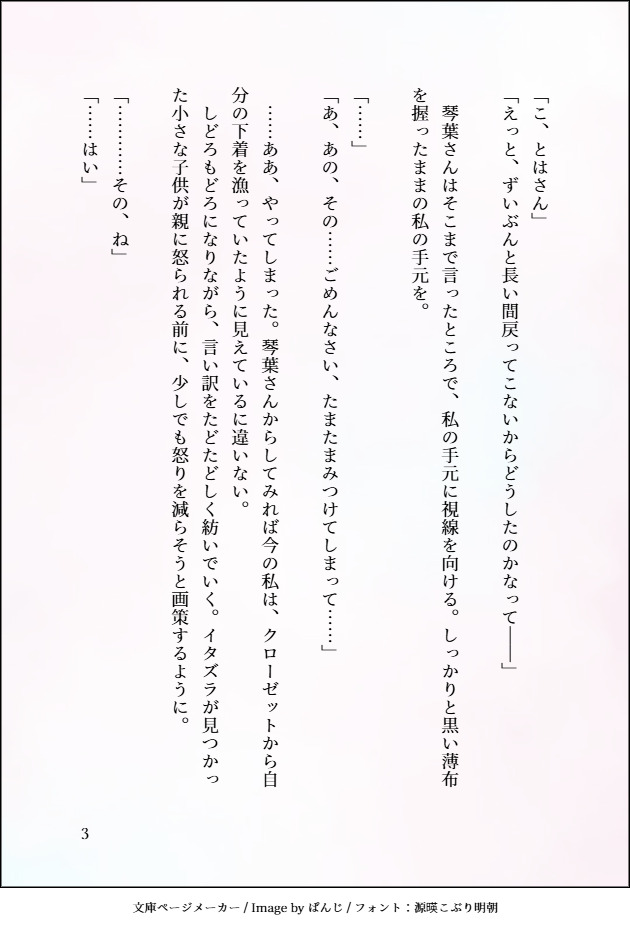 「こ、とはさん」
「えっと、ずいぶんと長い間戻ってこないからどうしたのかなって――」
　琴葉さんはそこまで言ったところで、私の手元に視線を向ける。しっかりと黒い薄布
を握ったままの私の手元を。
「……」
「あ、あの、その……ごめんなさい、たまたまみつけてしまって……」
　……ああ、やってしまった。琴葉さんからしてみれば今の私は、クローゼットから自
分の下着を漁っていたように見えているに違いない。
　しどろもどろになりながら、言い訳をたどたどしく紡いでいく。イタズラが見つかっ
た小さな子供が親に怒られる前に、少しでも怒りを減らそうと画策するように。
「…………その、ね」
「……はい」
3
文庫ページメーカー / Image by ぱんじ / フォント：源暎こぶり明朝